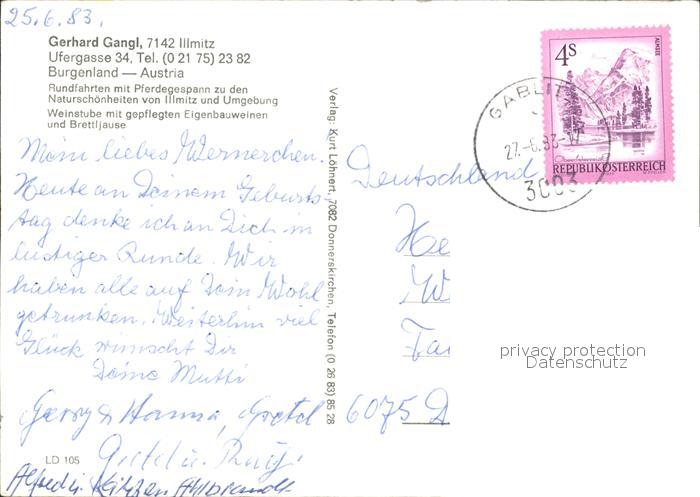 25.6.83.
Gerhard Gangl, 7142 Illmitz
Ufergasse 34, Tel. (0 21 75) 23 82
Burgenland — Austria
Rundfahrten mit Pferdegespann zu den
Naturschönheiten von Illmitz und Umgebung
Weinstube mit gepflegten Eigenbauweinen
und Brettljause
Mein liebes Wernerchen.
Heute an Deinem Geburts-
tag denke ich an Dich in
lustiger Runde. Wir
haben alle auf Dein Wohl
getrunken. Weiterhin viel
Glück wünscht Dir
Deine Mutti
Georg & Hanna, Gretel
LD 105
Alfred u.
Verlag: Kurt Löhnert, 7082 Donnerskirchen, Telefon (0 26 83) 85 28
4S
ALMSEE
Oberösterreich
REPUBLIK ÖSTERREICH
GABLIT
27.-6.83-17
3003
Deutschland
He
W
Ta
6075 D
privacy protection
Datenschutz